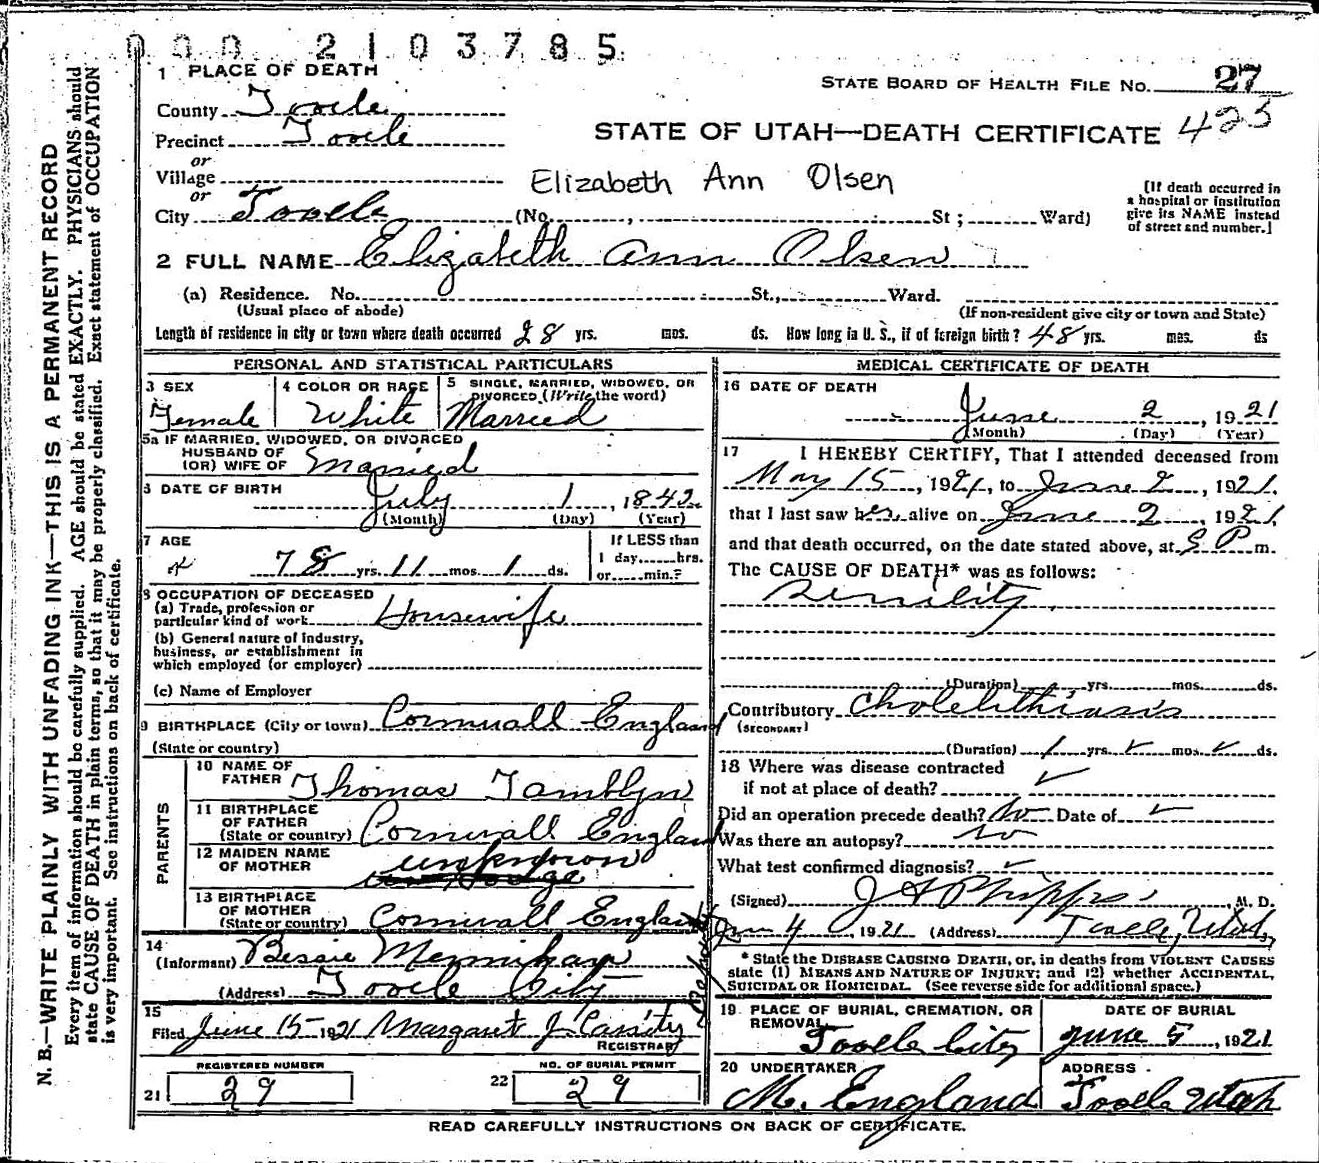 000 2103785
1 PLACE OF DEATH
STATE BOARD OF HEALTH FILE NO. 27
County Tooele
425
Precinct Tooele
STATE OF UTAH—DEATH CERTIFICATE
or
Village
Elizabeth Ann Olsen
or
[If death occurred in a hospital or institution give its NAME instead of street and number.]
City Tooele (No. , St ; Ward)
2 FULL NAME Elizabeth Ann Olsen
(a) Residence. No. St., Ward.
(Usual place of abode) (If non-resident give city or town and State)
Length of residence in city or town where death occurred 28 yrs. mos. ds. How long in U. S., if of foreign birth? 48 yrs. mos. ds
PERSONAL AND STATISTICAL PARTICULARS
3 SEX
Female
4 COLOR OR RACE
White
5 SINGLE, MARRIED, WIDOWED, OR DIVORCED (Write the word)
Married
5a IF MARRIED, WIDOWED, OR DIVORCED
HUSBAND OF
(OR) WIFE OF Married
6 DATE OF BIRTH
July 1, 1842
(Month) (Day) (Year)
7 AGE
78 yrs. 11 mos. 1 ds.
If LESS than
1 day......hrs.
or......min.?
8 OCCUPATION OF DECEASED
(a) Trade, profession or
particular kind of work Housewife
(b) General nature of industry,
business, or establishment in
which employed (or employer)
(c) Name of Employer
9 BIRTHPLACE (City or town) Cornwall England
(State or country)
PARENTS
10 NAME OF
FATHER Thomas Tamblyn
11 BIRTHPLACE
OF FATHER
(State or country) Cornwall England
12 MAIDEN NAME
OF MOTHER unknown
13 BIRTHPLACE
OF MOTHER
(State or country) Cornwall England
14
(Informant) Bessie
(Address) Tooele City
15
Filed June 15 1921 Margaret J. Cassity
REGISTRAR
REGISTERED NUMBER
21 29
NO. OF BURIAL PERMIT
22 29
MEDICAL CERTIFICATE OF DEATH
16 DATE OF DEATH
June 2, 1921
(Month) (Day) (Year)
17 I HEREBY CERTIFY, That I attended deceased from
May 15, 1921, to June 2, 1921,
that I last saw her alive on June 2, 1921,
and that death occurred, on the date stated above, at P m.
The CAUSE OF DEATH* was as follows:
Senility
(Duration) yrs. mos. ds.
Contributory Cholelithiasis
(SECONDARY)
(Duration) 1 yrs ✓ mos ✓ ds.
18 Where was disease contracted
if not at place of death? ✓
Did an operation precede death? No Date of ✓
Was there an autopsy? No
What test confirmed diagnosis? ✓
(Signed) J A Phipps, M. D.
Jun 4, 1921 (Address) Tooele, Utah,
* State the DISEASE CAUSING DEATH, or, in deaths from VIOLENT CAUSES
state (1) MEANS AND NATURE OF INJURY; and (2) whether ACCIDENTAL,
SUICIDAL OR HOMICIDAL. (See reverse side for additional space.)
19 PLACE OF BURIAL, CREMATION, OR
REMOVAL
Tooele City
DATE OF BURIAL
June 5, 1921
20 UNDERTAKER
M. England
ADDRESS
Tooele Utah
READ CAREFULLY INSTRUCTIONS ON BACK OF CERTIFICATE.
N. B.—WRITE PLAINLY WITH UNFADING INK—THIS IS A PERMANENT RECORD
Every item of information should be carefully supplied. AGE should be stated EXACTLY. PHYSICIANS should
state CAUSE OF DEATH in plain terms, so that it may be properly classified. Exact statement of OCCUPATION
is very important. See instructions on back of certificate.